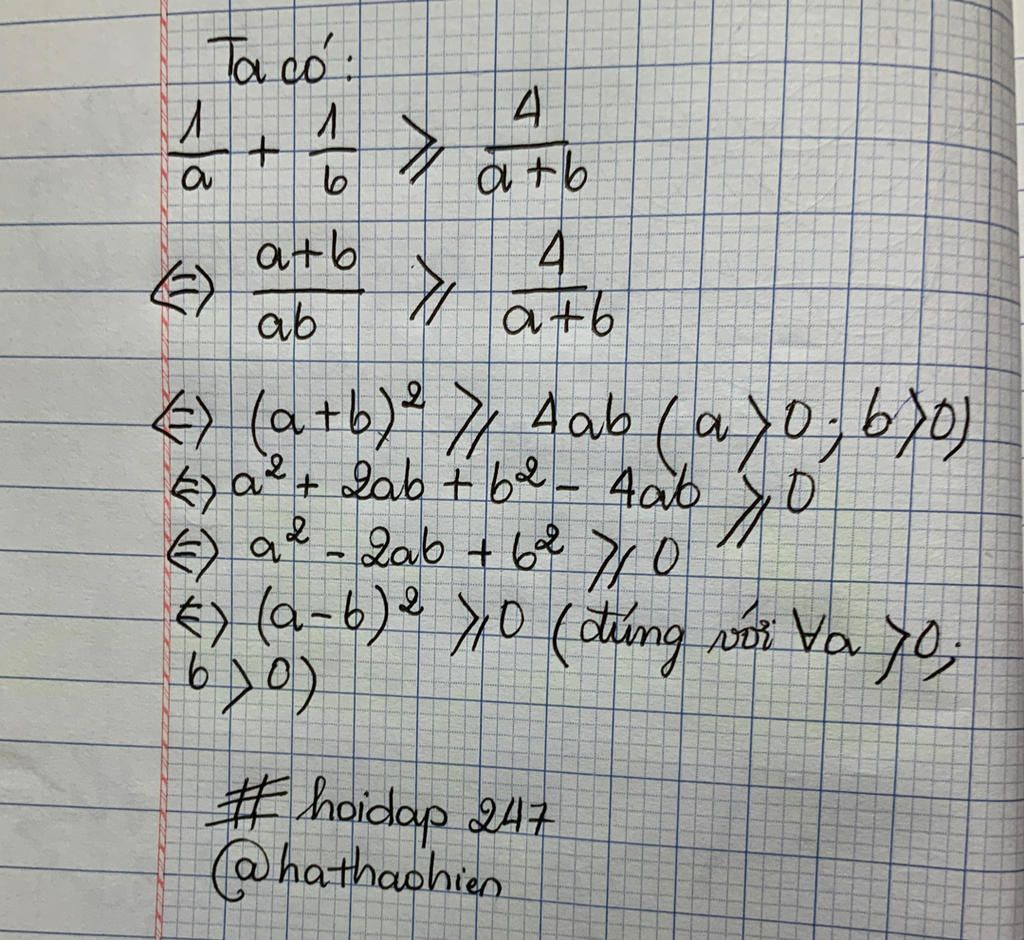 Ta có:
1/a + 1/b ⩾ 4/(a+b)
⇔ (a+b)/ab ⩾ 4/(a+b)
⇔ (a+b)² ⩾ 4ab (a>0; b>0)
⇔ a² + 2ab + b² - 4ab ⩾ 0
⇔ a² - 2ab + b² ⩾ 0
⇔ (a-b)² ⩾ 0 (đúng với ∀a >0;
b >0)
# hoidap 247
@hathaohien